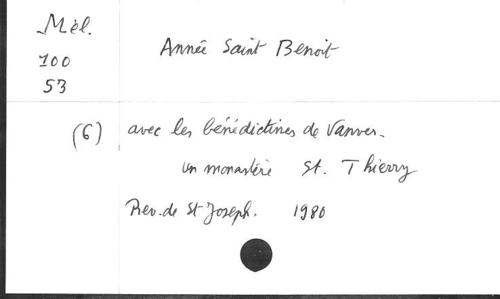 Mél.
100
53
Année Saint Benoit
(6) avec les bénédictines de Vanves.
un monastère St. Thierry
Prev. de St Joseph. 1980